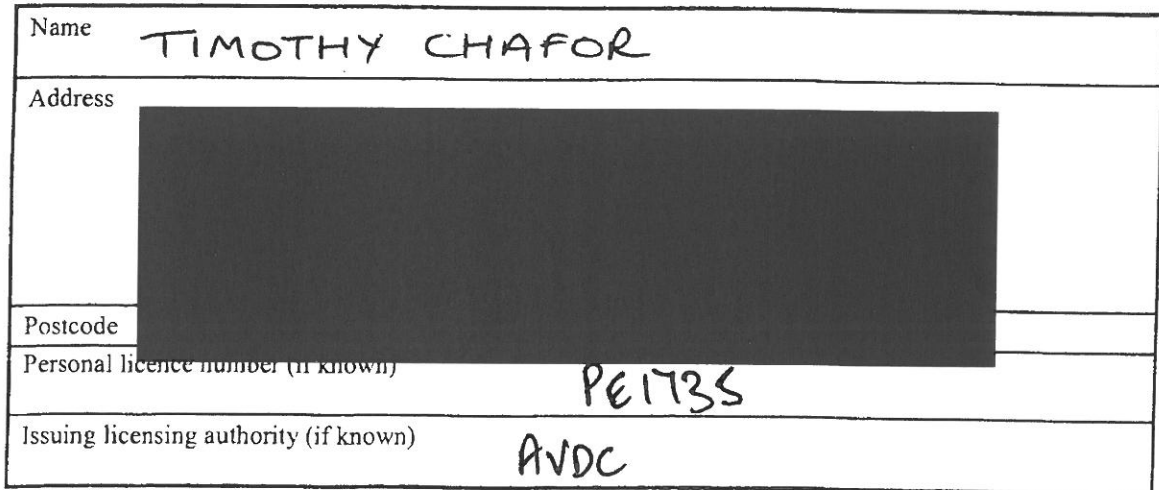 Name TIMOTHY CHAFOR
Address
Postcode
Personal licence number (if known)
PE1735
Issuing licensing authority (if known)
AVDC